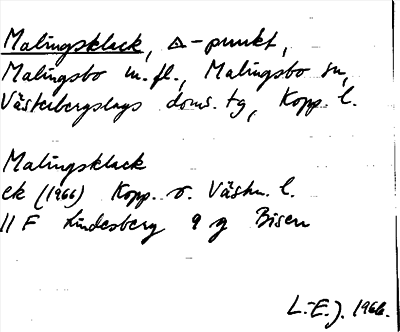 Malingsklack, △-punkt,
Malingsbo m.fl., Malingsbo sn,
Västerbergslags doms.tg, Kopp. l.
Malingsklack
ek (1966) Kopp. o. Västm. l.
11 F Lindesberg 9 g Bisen
L.-E.J. 1966.